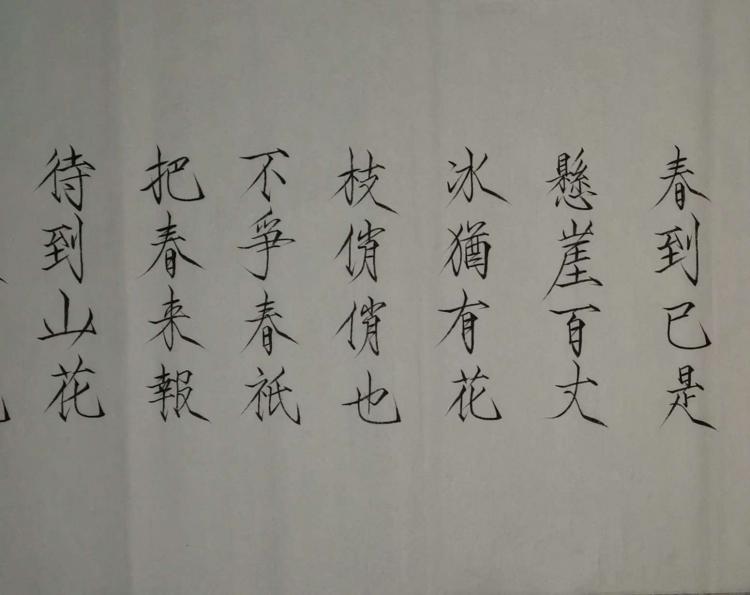 春到已是
懸崖百丈
冰猶有花
枝俏俏也
不爭春祇
把春来報
待到山花